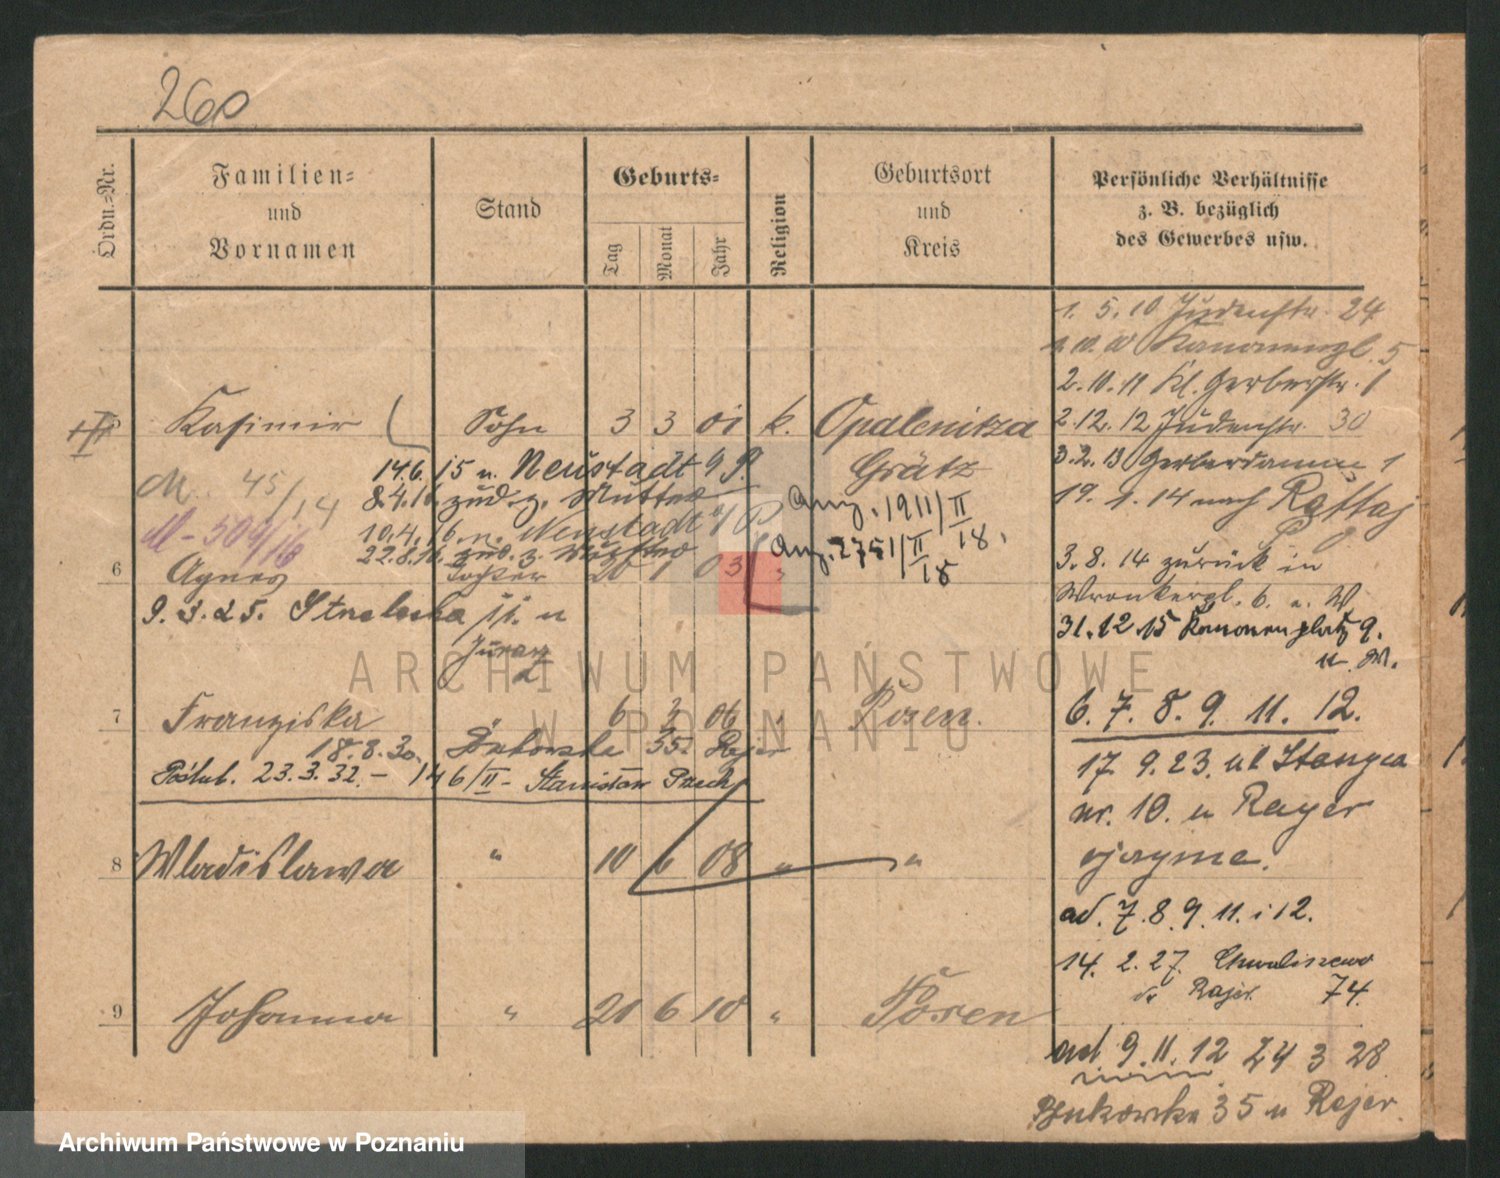 260
Ordn.-Nr.
Familien-
und
Vornamen
Stand
Geburts-
Tag
Monat
Jahr
Religion
Geburtsort
und
Kreis
Persönliche Verhältnisse
z. B. bezüglich
des Gewerbes usw.
1. 5. 10 Judenstr. 24
Kanonenpl. 5
2. 10. 11 Kl. Gerberstr. 1
Kasimir Sohn 3 3 01 k. Opalenitza
2. 12. 12 Judenstr. 30
Grätz
3. 2. 13 Gerberdamm 1
19. 1. 14 nach
M. 45/14
14.6.15 n. Neustadt
8.4.16 zur. z. Mutter
Anz. 1911/II 18.
M - 509/16
10.4.16. n. Neustadt
22.8.16. zur. z. Mutter
Anz. 2751/II 18
6 Agnes Tochter 20 1 03 "
3. 8. 14 zurück in
9. 3. 25. Strzelecka 11. u
Wronkerpl. 6. u. W
31. 12. 15 Kanonenplatz 9.
u. M.
7 Franziska 6 3 06 " Posen.
6. 7. 8. 9. 11. 12.
18. 8. 30. Żukowska 35 Rejer
Poślub. 23.3.32. - 146/II - Stanisław
17. 9. 23. ul
nr. 10. u Rayer
8 Wladislawa " 10 6 08 " "
ojczyma.
ad. 7. 8. 9. 11. i 12.
14. 2. 27. Chwaliszewo
Rajer 74.
9 Johanna " 20 6 10 " Posen
ad 9. 11. 12 24 3 28
35 u Rejer.
ARCHIWUM PAŃSTWOWE
W POZNANIU
Archiwum Państwowe w Poznaniu